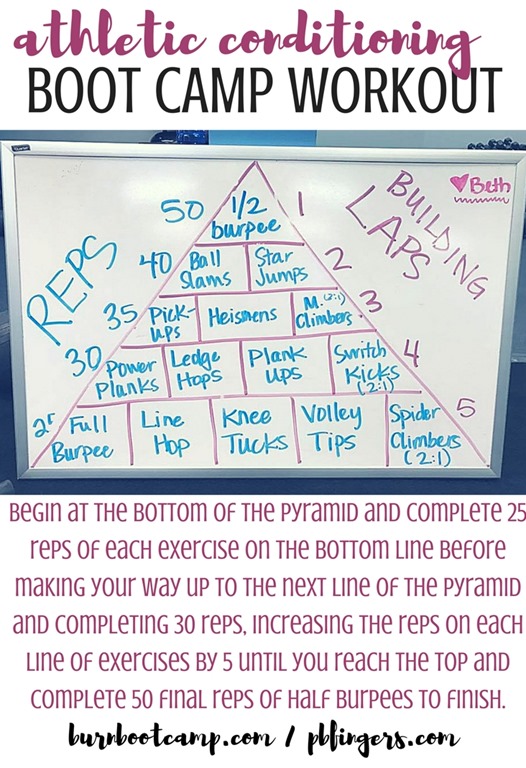 athletic conditioning
BOOT CAMP WORKOUT
♥ Beth
BUILDING
LAPS
REPS
50 1/2 burpee 1
40 Ball Slams Star Jumps 2
35 Pick-ups Heismens M. (2:1) Climbers 3
30 Power Planks Ledge Hops Plank ups Switch Kicks (2:1) 4
25 Full Burpee Line Hop Knee Tucks Volley Tips Spider Climbers (2:1) 5
Begin at the bottom of the pyramid and complete 25
reps of each exercise on the bottom line before
making your way up to the next line of the pyramid
and completing 30 reps, increasing the reps on each
line of exercises by 5 until you reach the top and
complete 50 final reps of half burpees to finish.
burnbootcamp.com / pbfingers.com